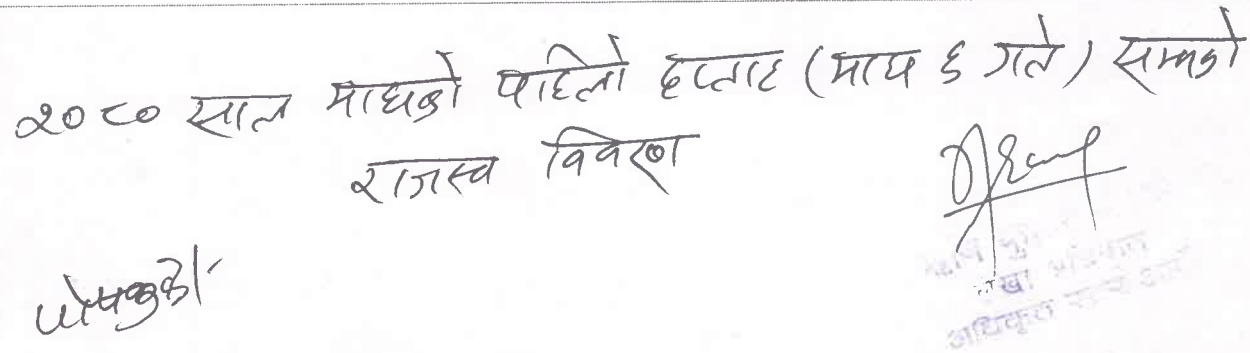 २०८० साल माघको पहिलो हप्ताह (माघ ६ गते) सम्मको
राजस्व विवरण
अधिकृत